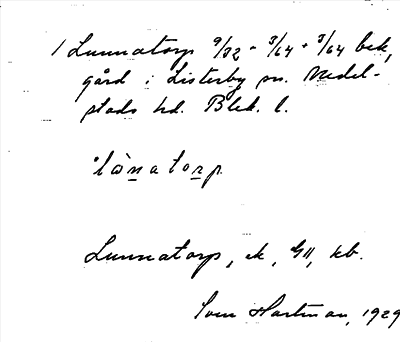 1 Lunnatorp 9/32 - 3/64 + 3/64 bek,
gård i Listerby sn. Medel-
stads hd. Blek. l.
'lònatorp
Lunnatorp, ek, GII, kb.
Sven Hartman, 1929